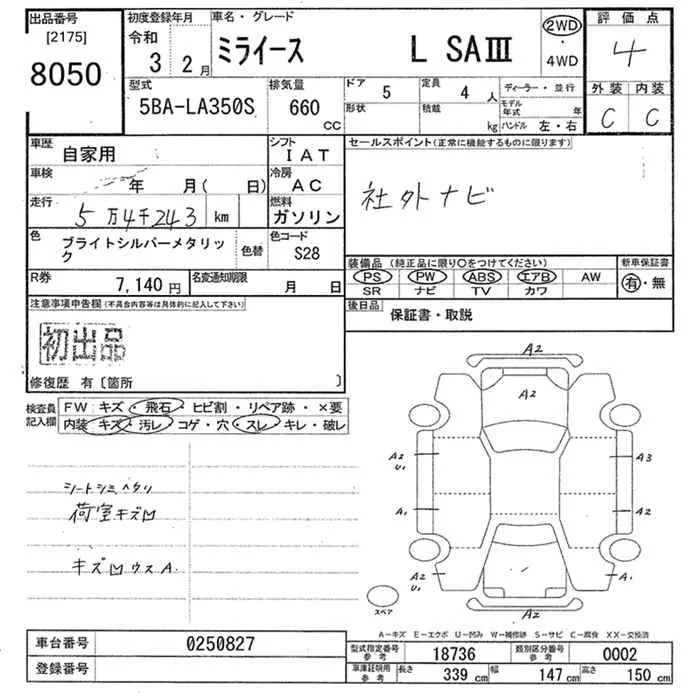 出品番号 初度登録年月 車名・グレード 評価点
[2175] 令和 ミライース L SAⅢ 2WD 4
8050 3 2月 ・4WD
型式 排気量 ドア 5 定員 4人 ディーラー・並行 外装 内装
5BA-LA350S 660cc 形状 積載 kg モデル年式 年 C C
ハンドル 左・右
車歴 自家用 シフト IAT セールスポイント(正常に機能するものに限ります)
車検 年 月( 日) 冷房 AC 社外ナビ
走行 5万4千243 km 燃料 ガソリン
色 ブライトシルバーメタリック 色替 色コード S28 装備品(純正品に限り○をつけてください) 新車保証書
R券 7,140円 名変通知期限 月 日 PS PW ABS エアB AW 有・無
SR ナビ TV カワ
注意事項申告欄(不具合内容等は具体的に記入して下さい) 後日品 保証書・取説
初出品
修復歴 有〔箇所 〕
検査員記入欄 FW:キズ・飛石・ヒビ割・リペア跡・×要
内装:キズ・汚レ・コゲ・穴・スレ・キレ・破レ
A2
A2
A2 U1 A3
A1 A2
A2 U1 A1
A2
シートシミヘタリ
荷室キズ凹
キズ凹ウスA.
スペア
A-キズ E-エクボ U-凹み W-補修跡 S-サビ C-腐食 XX-交換済
車台番号 0250827 型式指定番号参考 18736 類別区分番号参考 0002
登録番号 車庫証明用参考 長さ 339cm 幅 147cm 高さ 150cm